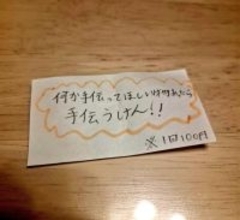 何か手伝ってほしい時あったら
手伝うけん!!
※1回100円